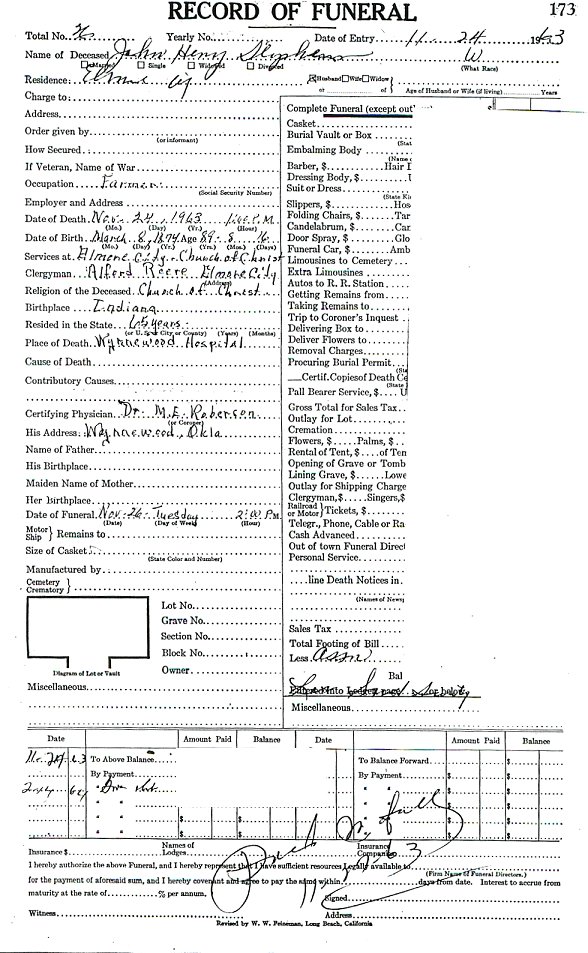 RECORD OF FUNERAL 173
Total No. Yearly No. Date of Entry 11 - 24 1963
Name of Deceased John Henry Stephens W
Married Single Widowed Divorced (What Race)
Residence: Husband Wife Widow
or of Age of Husband or Wife (if living) Years
Charge to:
Address
Order given by
(or informant)
How Secured
If Veteran, Name of War
Occupation Farmer
(Social Security Number)
Employer and Address
Date of Death Nov. 24, 1963 P.M.
(Mo.) (Day) (Yr.) (Hour)
Date of Birth March 8, 1874 Age 89 - 8 - 16
(Mo.) (Day) (Yr.) (Yrs.) (Mos.) (Days)
Services at Elmore City - Church of Christ
Clergyman Alford Elmore City
(Address)
Religion of the Deceased Church of Christ
Birthplace Indiana
Resided in the State 65 years
(or U. S. or City or County) (Years) (Months)
Place of Death Wynnewood Hospital
Cause of Death
Contributory Causes
Certifying Physician Dr. M. E. Roberson
(or Coroner)
His Address Wynnewood, Okla
Name of Father
His Birthplace
Maiden Name of Mother
Her Birthplace
Date of Funeral Nov. 26 - Tuesday 2:00 P.M.
(Date) (Day of Week) (Hour)
Motor Ship } Remains to
Size of Casket
(State Color and Number)
Manufactured by
Cemetery Crematory }
Lot No.
Grave No.
Section No.
Block No.
Owner
Diagram of Lot or Vault
Miscellaneous
Complete Funeral (except out'
Casket
Burial Vault or Box
(Stat
Embalming Body
(Name o
Barber, $ Hair I
Dressing Body, $
Suit or Dress
(State Ki
Slippers, $ Hos
Folding Chairs, $ Tar
Candelabrum, $ Car
Door Spray, $ Glo
Funeral Car, $ Amb
Limousines to Cemetery
Extra Limousines
Autos to R. R. Station
Getting Remains from
Taking Remains to
Trip to Coroner's Inquest
Delivering Box to
Deliver Flowers to
Removal Charges
Procuring Burial Permit
(St
Certif. Copies of Death Ce
(State
Pall Bearer Service, $ U
Gross Total for Sales Tax
Outlay for Lot
Cremation
Flowers, $ Palms, $
Rental of Tent, $ of Ten
Opening of Grave or Tomb
Lining Grave, $ Lowe
Outlay for Shipping Charge
Clergyman, $ Singers, $
Railroad or Motor } Tickets, $
Telegr., Phone, Cable or Ra
Cash Advanced
Out of town Funeral Direct
Personal Service
line Death Notices in
(Names of Newsp
Sales Tax
Total Footing of Bill
Less
Bal
Entered into Ledger page or below
Miscellaneous
Date Amount Paid Balance Date Amount Paid Balance
11 - 24 63 To Above Balance To Balance Forward $
By Payment By Payment $
" " " " $
" " " " $
" " $ $ " " $
" " $ $ " " $
Insurance $ Names of Lodges Insurance Companies
I hereby authorize the above Funeral, and I hereby represent that I have sufficient resources legally available to
(Firm Name of Funeral Directors.)
for the payment of aforesaid sum, and I hereby covenant and agree to pay the same within days from date. Interest to accrue from
maturity at the rate of % per annum.
Signed
Witness Address
Revised by W. W. Feineman, Long Beach, California